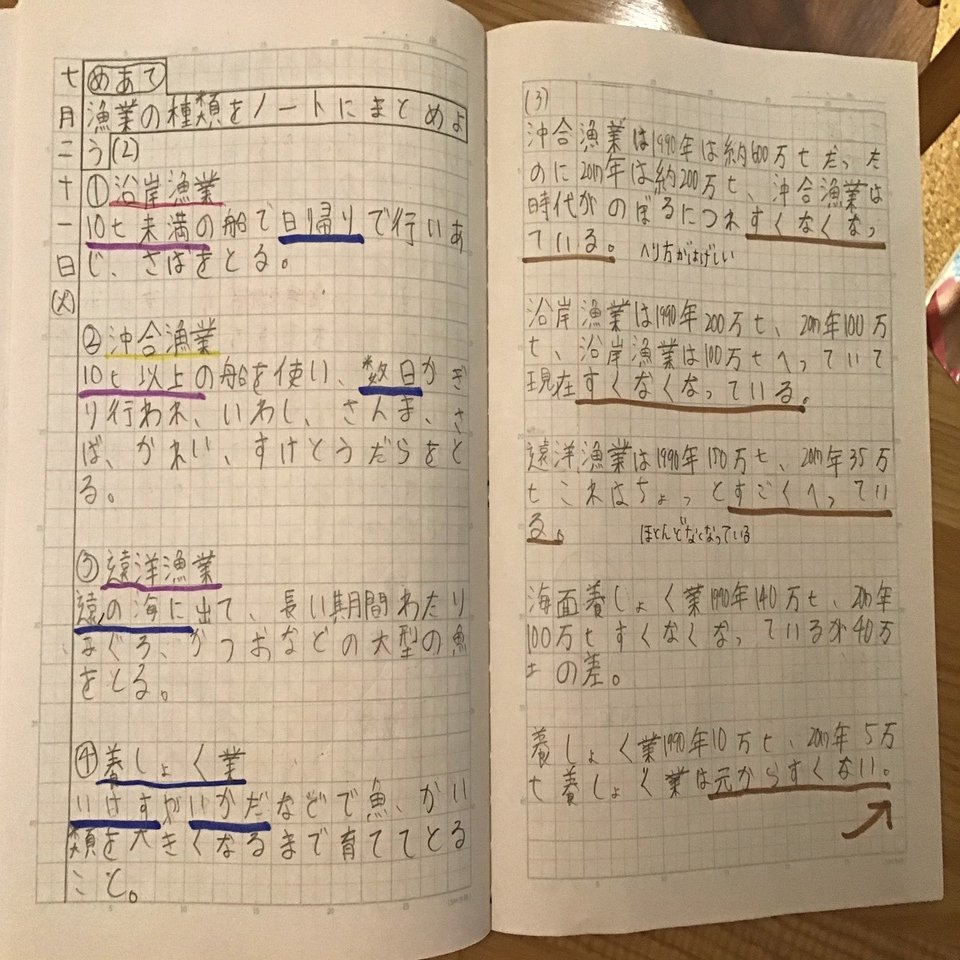 七月二十一日(火)
めあて
漁業の種類をノートにまとめよ
う(2)
①沿岸漁業
10t未満の船で日帰りで行いあ
じ、さばをとる。
②沖合漁業
10t以上の船を使い、数日かぎ
り行われ、いわし、さんま、さ
ば、かれい、すけとうだらをと
る。
③遠洋漁業
遠の海に出て、長い期間わたり
まぐろ、かつおなどの大型の魚
をとる。
④養しょく業
いけすやいかだなどで魚、かい
類を大きくなるまで育ててとる
こと。
(3)
沖合漁業は1990年は約600万tだった
のに2017年は約200万t、沖合漁業は
時代がのぼるにつれすくなくなっ
ている。 へり方がはげしい
沿岸漁業は1990年200万t、2017年100万
t、沿岸漁業は100万tへっていて
現在すくなくなっている。
遠洋漁業は1990年150万t、2017年35万
tこれはちょっとすごくへってい
る。 ほとんどなくなっている
海面養しょく業1990年140万t、2017年
100万tすくなくなっているが40万
tの差。
養しょく業1990年10万t、2017年5万
t養しょく業は元からすくない。